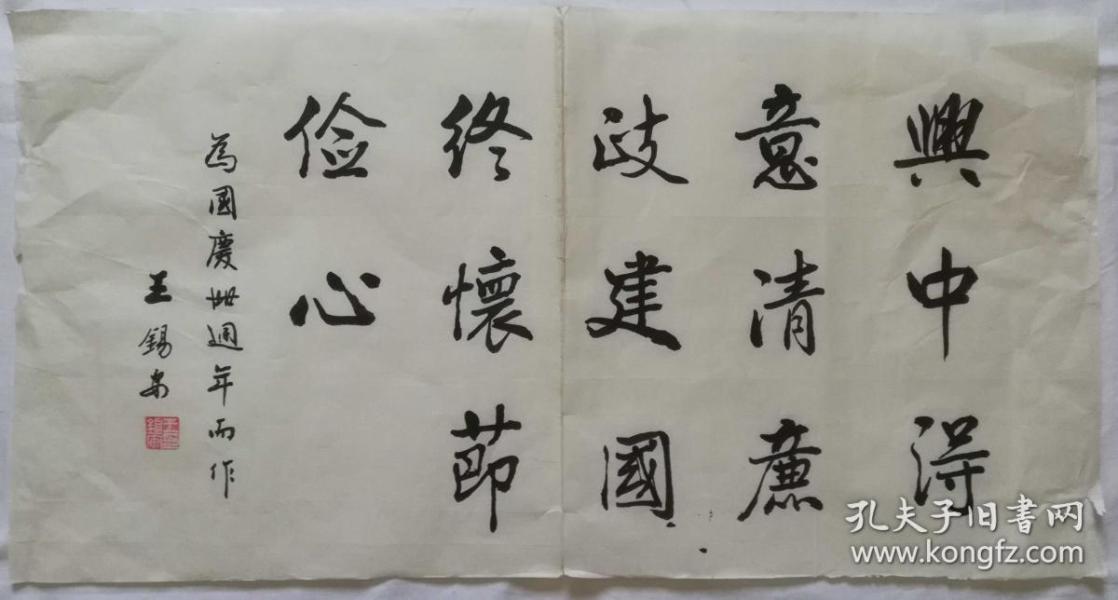 興中得
意清廉
政建國
终懷節
俭心
為國慶卌週年而作
王錫安
孔夫子旧書网
www.kongfz.com